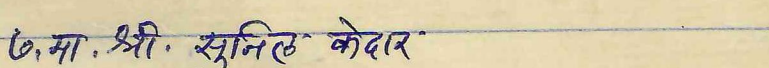 ७. मा. श्री. सुनिल केदार